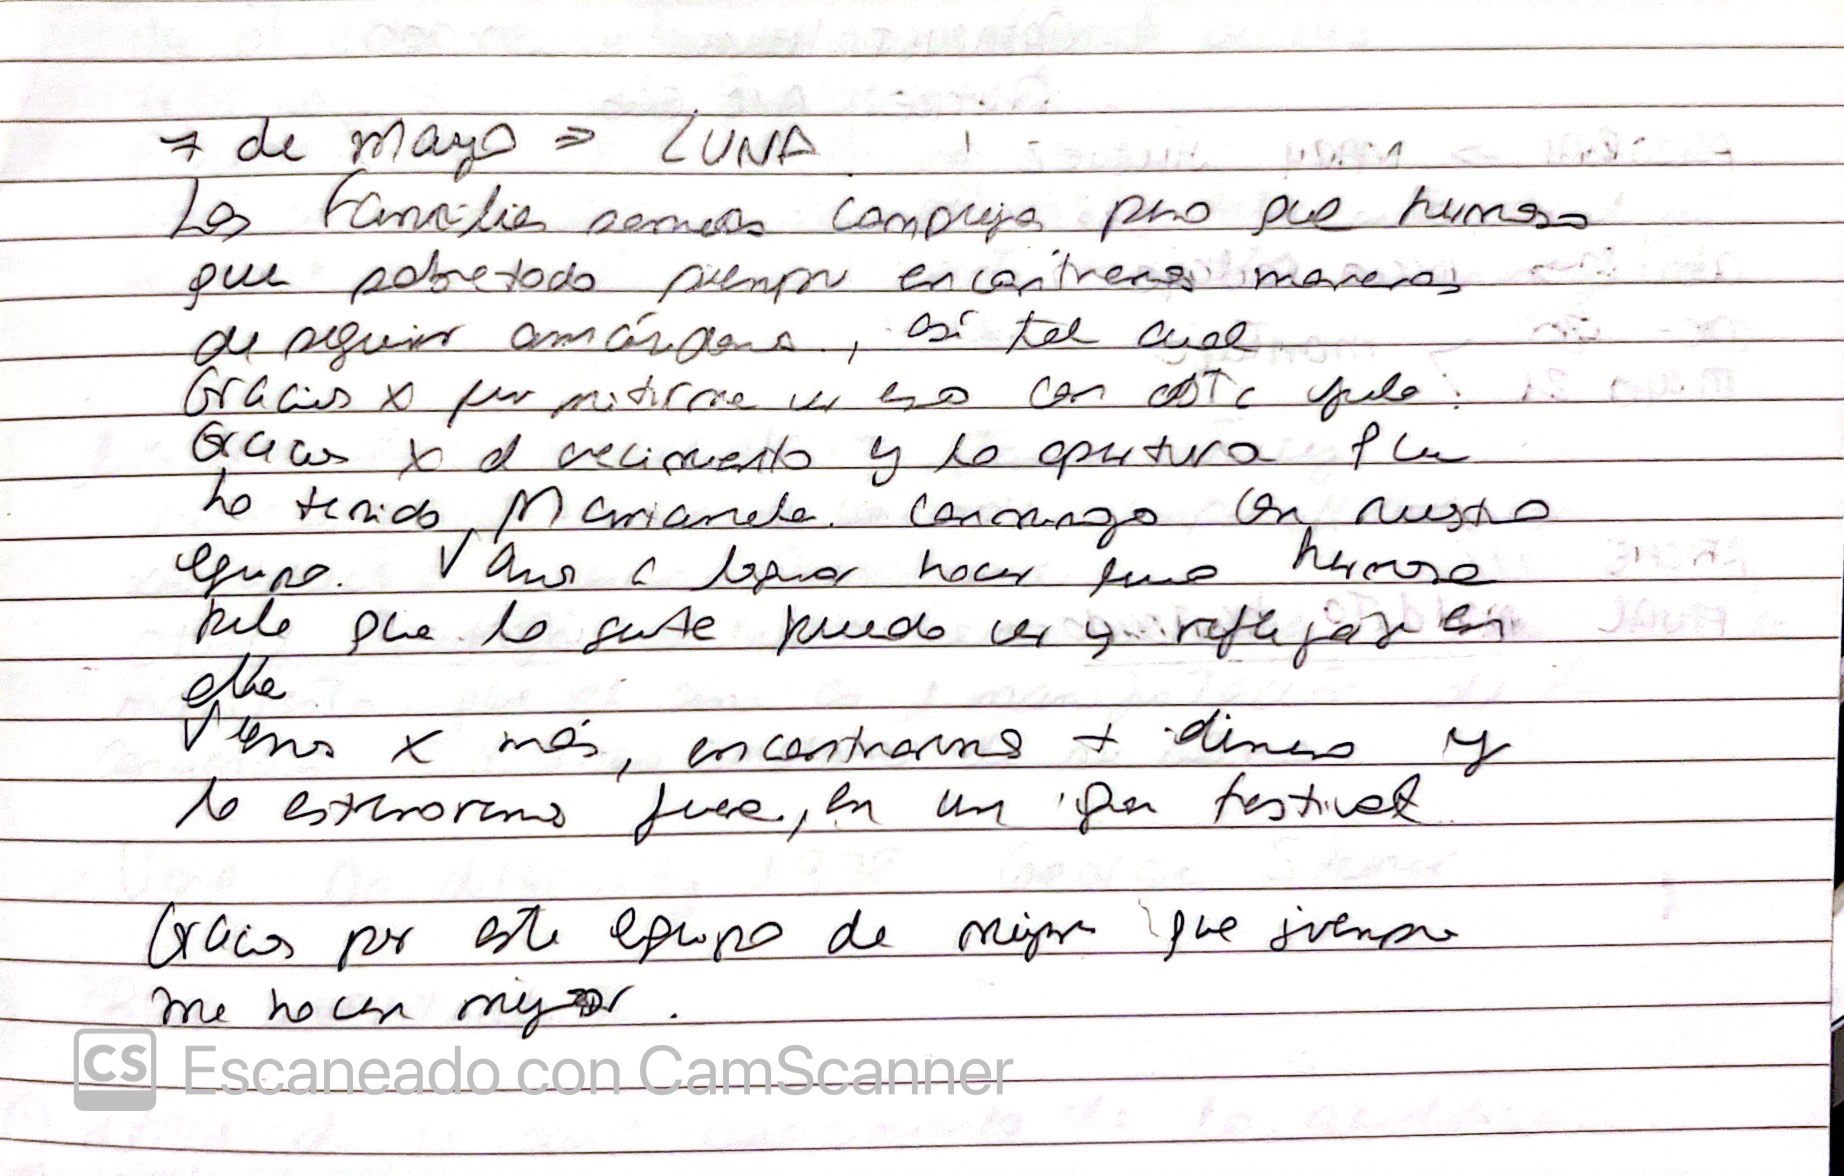 7 de mayo => LUNA
Las familias somos complejas pero que hermoso
que sobretodo siempre encontremos maneras
de seguir amándonos, así tal cual
Gracias x permitirme ver eso con esta peli.
Gracias x el crecimiento y la apertura que
ha tenido Marianela conmigo con nuestro
equipo. Vamos a lograr hacer una hermosa
peli que la gente pueda ver y reflejar en
ella
Vamos x más, encontraremos + dinero y
la estrenaremos fuera, en un gran festival
Gracias por este equipo de mujeres que siempre
me hacen mejor.
CS Escaneado con CamScanner